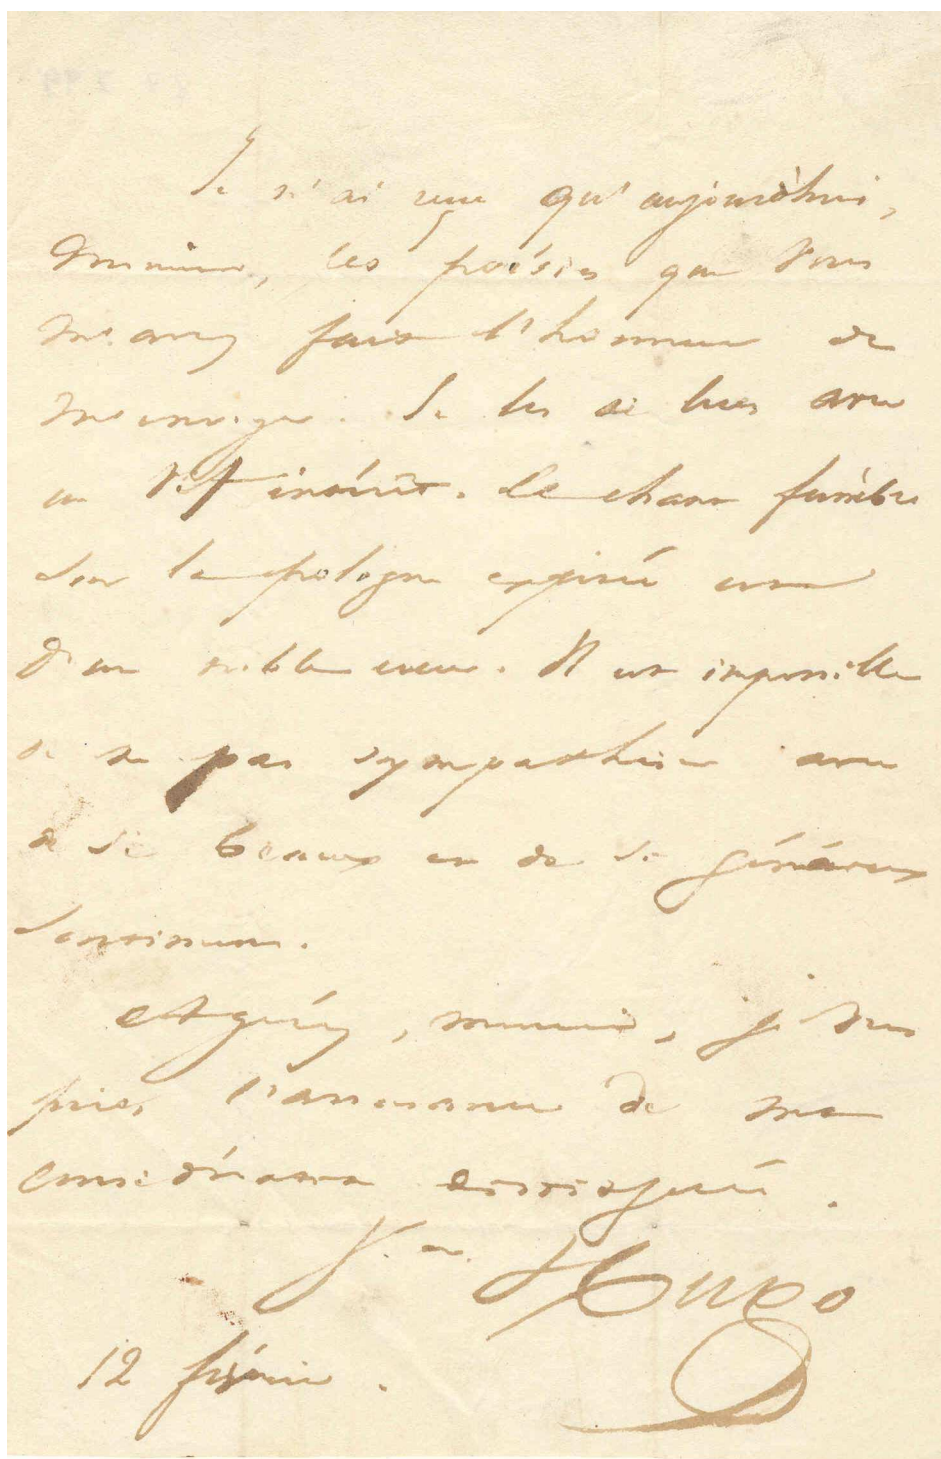 Je n'ai reçu qu'aujourd'hui,
Monsieur, les poésies que vous
m'avez fait l'honneur de
m'envoyer. Je les ai lues avec
un vif intérêt. Le chant funèbre
sur la pologne expirée est
d'un noble cœur. Il est impossible
de ne pas sympathiser avec
de si beaux et de si généreux
sentiments.
Agréez, monsieur, je vous
prie, l'assurance de ma
considération distinguée.
Victor Hugo
12 février.